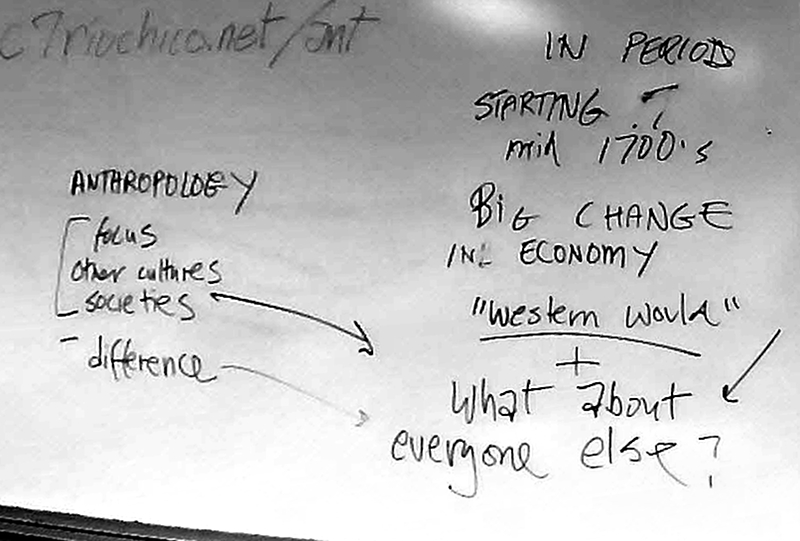 ANTHROPOLOGY
focus
other cultures
societies
- difference
IN PERIOD
STARTING
mid 1700's
BIG CHANGE
IN ECONOMY
"Western would"
+
What about
everyone else?